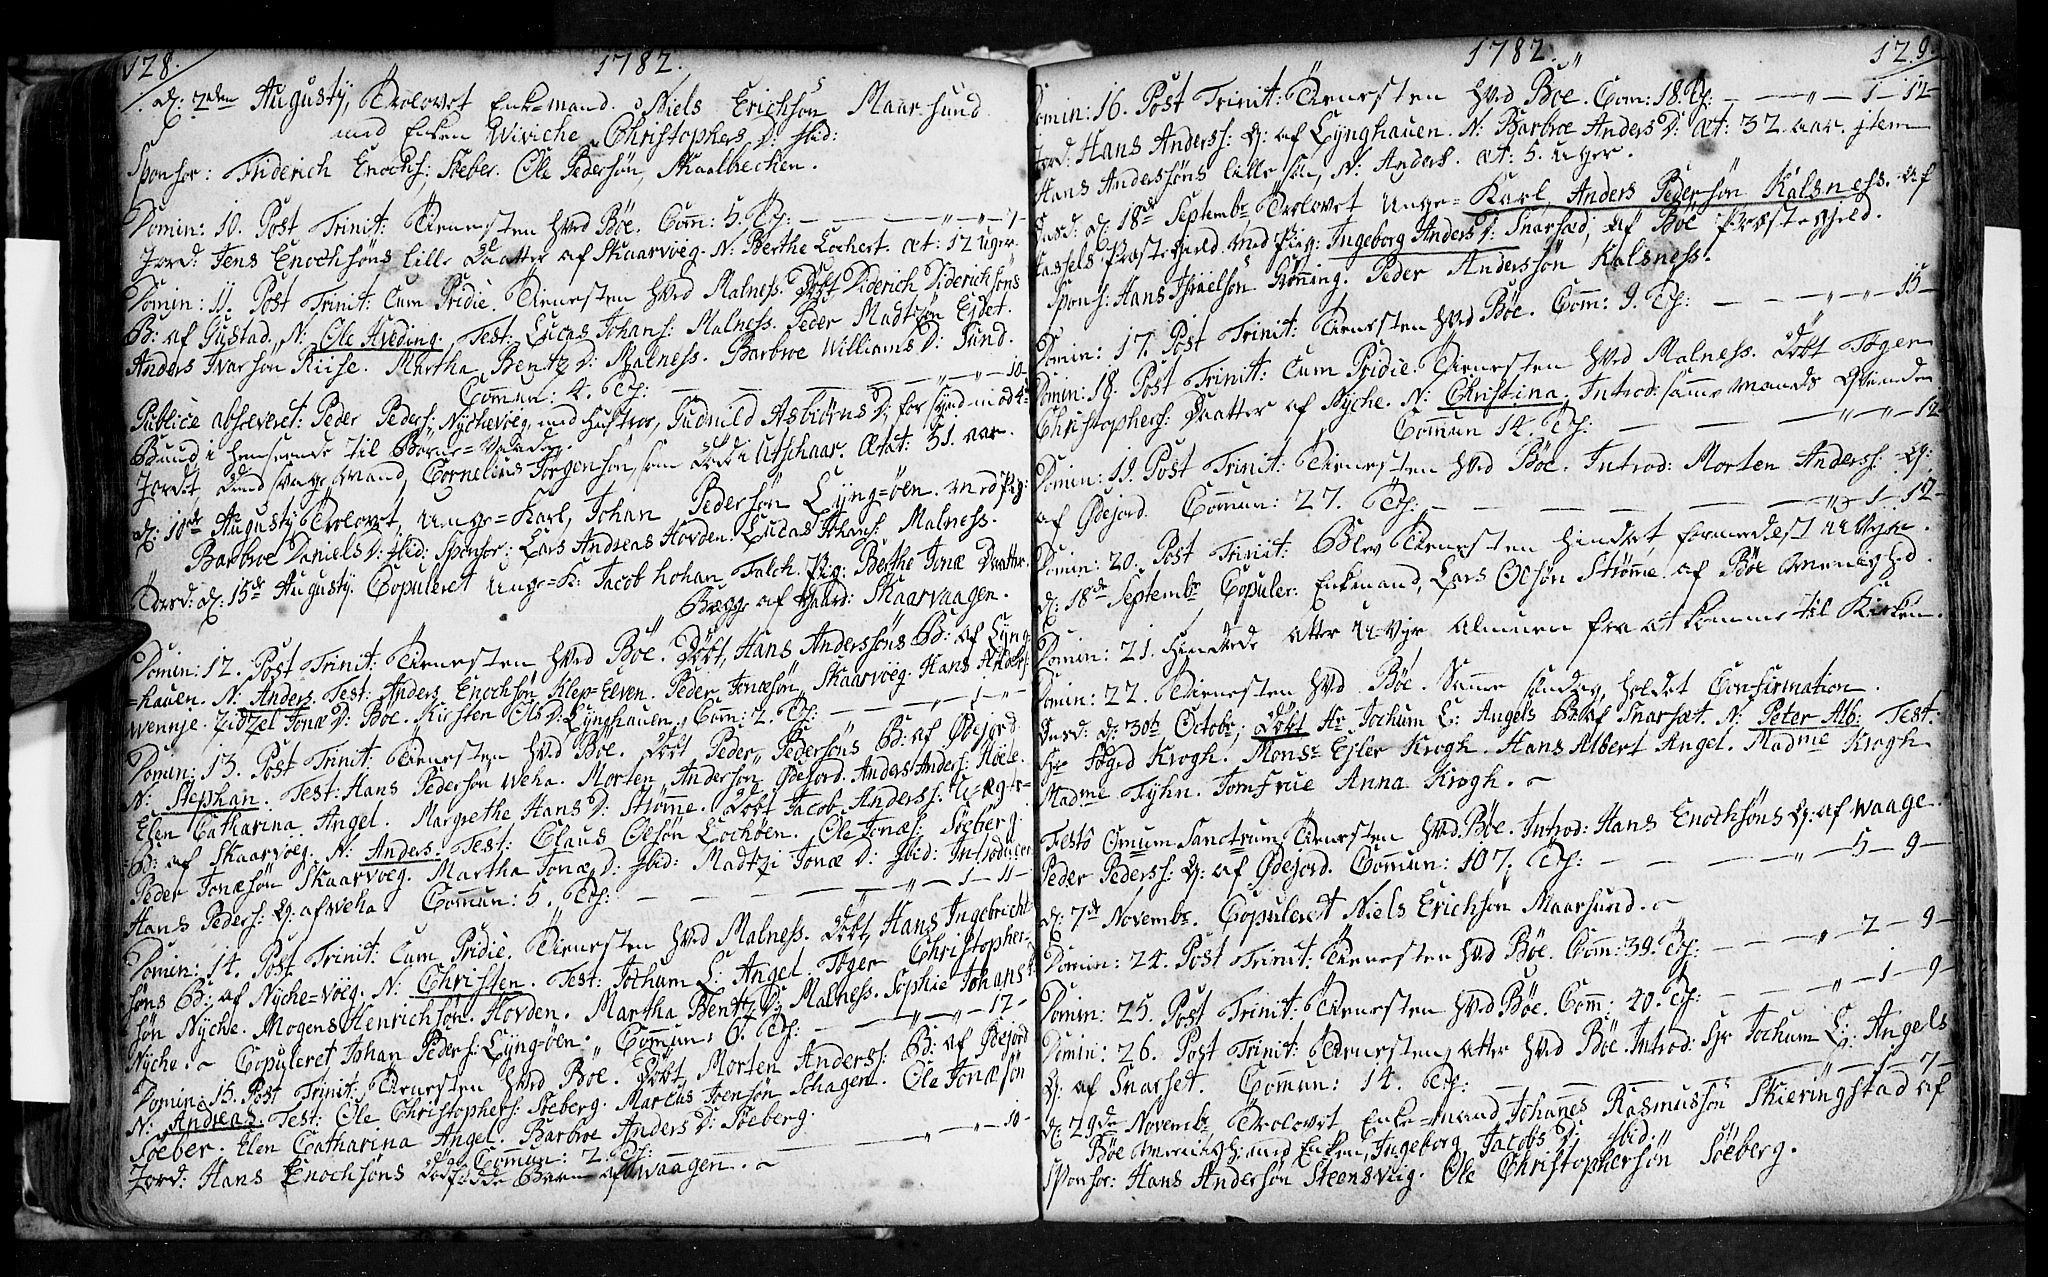 128. 1782.
d: 2den Augusty, Trolovet Enk=mand. Niels Erichsøn Maarsund
med Enken Wiviche Christophers D: ibid:
Sponsor: Friderich Enochs: Søeber. Ole Pedersøn, Skaalbrecken.
Domin: 10. Post Trinit: Tienesten hved Böe. Com: 5. Tf: — — — „ — „ — 7 —
Jord: Jens Enochsöns lille Daatter af Skaarvoeg. N: Berthe Lochert. æt: 12 Uger.
Domin: 11. Post Trinit: Cum Pridie. Tienesten hved Malness. Döbt Diderich Diderichsöns
B: af Gustad, N: Ole Hveding. Test: Lucas Johans: Malness. Peder Madtzøn Eidet.
Anders Ivarsøn Riise. Martha Bentz D: Malness. Barbroe Williams D: Sund.
Commun: 4. Tf: — — — „ — „ — 10 —
Publice absolveret: Peder Peders: Nychevoeg, med Hustroe, Gudnild Asbiørns D: for Synd imod 4de
Bud i henseende til Börne=
Jordet den svage Mand, Cornelius Jörgensøn, som død i Utschaar. Ætat: 51. aar.
d: 10de Augusty Trolovet, Unge=Karl, Johan Pedersøn Lyng=öen. med Pig:
Barbroe Daniels D: ibid: Sponsor: Lars Andreas Hovden. Lucas Johans: Malness.
d: 15de Augusty. Copuleret Unge=K: Jacob Johan Falch. Pig: Berthe Jonæ Daatter.
Begge af Gaard: Skaarvaagen.
Domin: 12. Post Trinit: Tienesten hved Böe. Döbt, Hans Anderssöns B: af Lyng=
=hauen. N: Anders. Test: Anders Enochsøn Klep=Elven. Peder Jonæsøn, Skaarvoeg. Hans Anders:
Wennje. Zidtzel Jonæ D: Böe. Kirsten Ols D: Lynghauen. Com: 2. Tf: — — — — 1 — „ —
Domin: 13. Post Trinit: Tienesten hved Böe. Döbt Peder Pedersöns B: af Ödejord.
N: Stephan. Test: Hans Pedersøn Weha. Morten Andersøn Ödejord. Anders Anders: Höile.
Elen Catharina Angel. Margrethe Hans D: Ströme. Döbt Jacob Anderss: U=ægte=
=B: af Skaarvoeg. N: Anders. Test: Claus Olsøn Lochöen. Ole Jonæs: Söeberg.
Peder Jonæsøn Skaarvoeg. Martha Jonæ D: ibid: Madtzi Jonæ D: ibid: Introducer
Hans Peders: Q: af Weha. Commun: 5. Tf: — — — „ — 1 — 11 —
Domin: 14. Post Trinit: Cum Pridie. Tienesten hved Malness. Döbt, Hans Ingebricht=
söns B: af Nyche=voeg. N: Christen. Test: Jochum L: Angel. Töger Christopher=
søn Nyche. Mogens Henrichsøn Hovden. Martha Bentz D: Malness. Sophie Johans D:
Nyche. ~ Copuleret Johan Peders: Lyng=öen. Commun: 6. Tf: — — „ — „ — 12 —
Domin: 15. Post Trinit: Tienesten hved Böe. Döbt, Morten Anderss: B: af Ödejord
N: Andreas. Test: Ole Christophers: Söeberg. Marcus Joensøn Schagen. Ole Jonæsøn
Söeber. Elen Catharina Angel. Barbroe Anders D: Söeberg.
Commun: 2. Tf: — — — „ — „ — 10 —
Jord: Hans Enochsöns dödfödde Barn af Waagen. ~
1782. 129.
Domin: 16. Post Trinit: Tienesten hved Böe. Com: 18. Tf: — — „ — 1 — 12 —
Jord: Hans Anderss: Q: af Lynghauen. N: Barbroe Anders D: æt: 32. aar. item
Hans Anderssöns lille Søn, N: Anders. æt: 5. Uger.
d: 18de Septembr Trolovet Unge=Karl Anders Pedersøn Kalsness. af
Hassels Præstegield. med Pig: Ingeborg Anders D: Snarsæd, af Böe Præstegjeld.
Spons: Hans Israelsøn Grönning. Peder Anderssøn Kalsness.
Domin: 17. Post Trinit: Tienesten hved Böe. Com: 9. Tf: — — — „ — „ — 15 —
Domin: 18. Post Trinit: Cum Pridie. Tienesten hved Malness. Döbt Töger
Christophers: Daatter af Nyche. N: Christina. Introd: samme Mands Qvinde
Commun 14. Tf: — — — „ — „ — 12
Domin: 19. Post Trinit: Tienesten hved Böe. Introd: Morten Anderss: Q:
af Ödejord. Commun: 27. Tf: — — — — „ — 1 — 12 —
Domin: 20. Post Trinit: Blev Tienesten hindret formedelst U=Vejr.
d: 18de Septembr Copuler: Enkemand, Lars Olsøn Strömme af Böe Menighed.
Domin: 21. hindrede atter U=Vejr Almuen fra at komme til Kirken.
Domin: 22. Tienesten hved Böe. Samme Söndag, holdet Confirmation.
d: 30te Octobr, Döbt Hr Jochum L: Angels B: af Snarset. N: Peter Alb: Test:
Hr Foged Krogh. Monsr Ejler Krogh. Hans Albert Angel. Madme Krogh.
Madme Tyhn. Jomfrue Anna Krogh. ~
Festo Omnium Sanctrum Tienesten hved Böe. Introd: Hans Enochsöns Q: af Waage.
Peder Pederss: Q: af Ödejord. Commun: 107. Tf: — — — „ — 5 — 9 —
d: 7de Novembr. Copuleret Niels Erichsøn Maarsund. ~
Domin: 24. Post Trinit: Tienesten hved Böe. Com: 39. Tf: — — — „ — 2 — 9 —
Domin: 25. Post Trinit: Tienesten hved Böe. Com: 20. Tf: — — — „ — 1 — 9 —
Domin: 26. Post Trinit: Tienesten, atter hved Böe. Introd: Hr Jochum L: Angels
Q: af Snarset. Commun: 14. Tf: — — — „ — 1 — 7 —
d: 29de Novembr Trolovet Enke=mand Johannes Rasmussøn Skieringstad af
Böe Menigh: med Enken, Ingeborg Jacobs D: ibid:
Sponsor: Hans Andersøn Steensviig. Ole Christophersøn Söeberg.